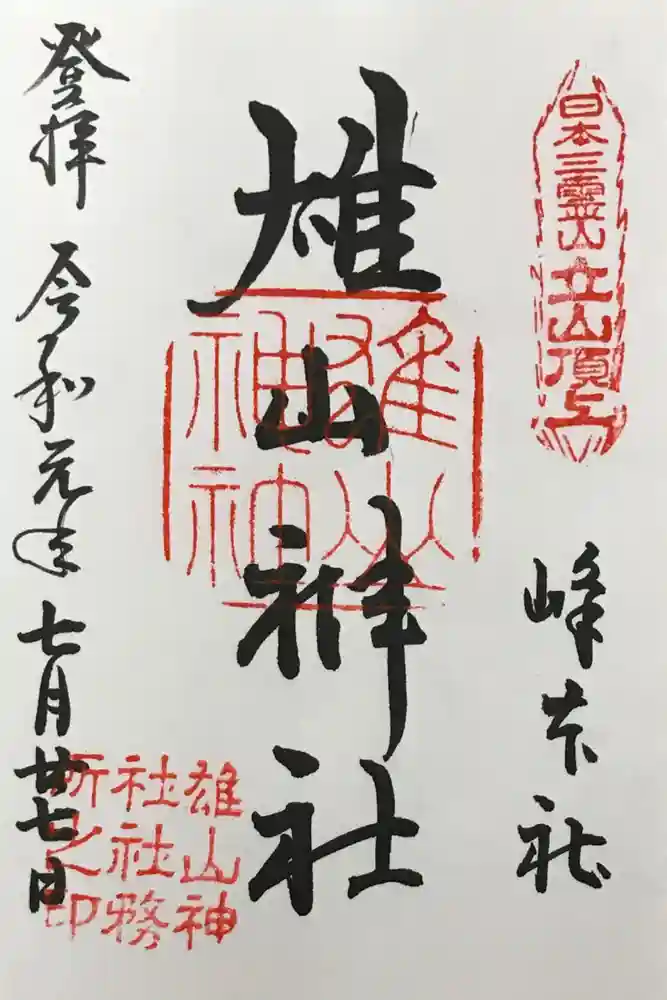 日本三霊山
立山頂上
峰本社
雄山神社
雄山
神社
雄山神
社社務
所之印
登拝
令和元年七月廿七日